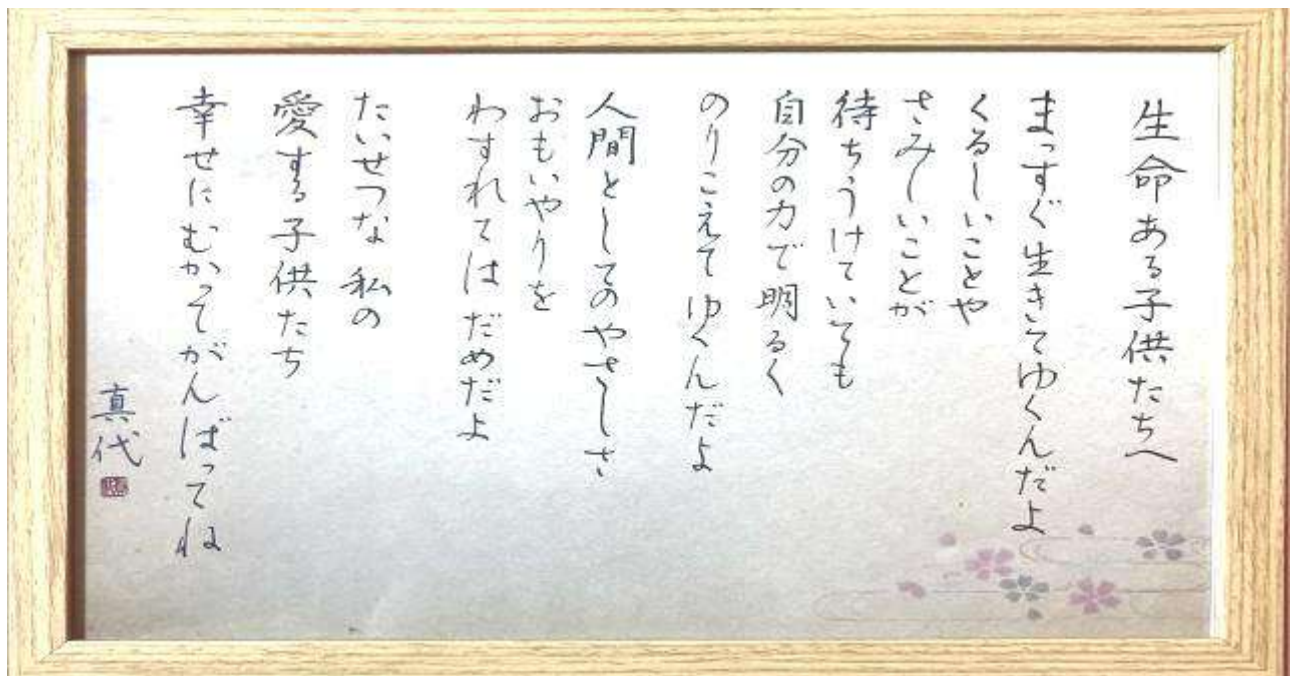 生命ある子供たちへ
まっすぐ生きてゆくんだよ
くるしいことや
さみしいことが
待ちうけていても
自分の力で明るく
のりこえてゆくんだよ
人間としてのやさしさ
おもいやりを
わすれてはだめだよ
たいせつな 私の
愛する子供たち
幸せにむかってがんばってね
真代